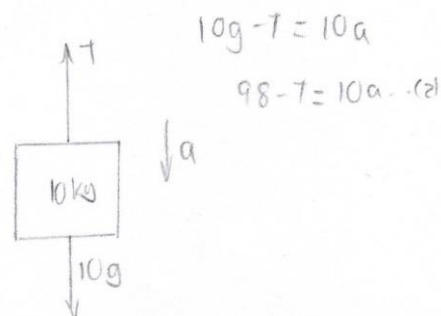 10g - T = 10a
98 - T = 10a ..(2)
T
a
10kg
10g